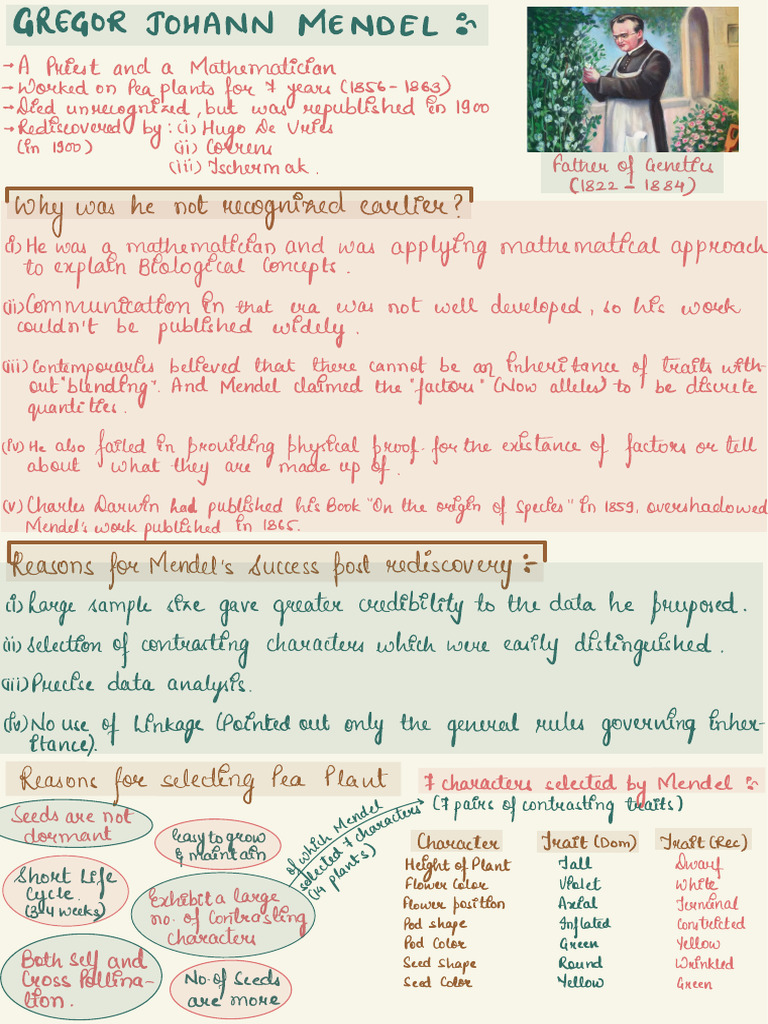 GREGOR JOHANN MENDEL :-
→ A Priest and a Mathematician
→ Worked on Pea plants for 7 years (1856 - 1863)
→ Died unrecognized, but was republished in 1900
→ Rediscovered by: (i) Hugo De Vries
(in 1900) (ii) Correns
(iii) Tschermak.
Father of Genetics
(1822 - 1884)
Why was he not recognized earlier?
(i) He was a mathematician and was applying mathematical approach
to explain Biological Concepts.
(ii) Communication in that era was not well developed, so his work
couldn't be published widely.
(iii) Contemporaries believed that there cannot be an inheritance of traits with-
out "blending". And Mendel claimed the "factors" (Now alleles) to be discrete
quantities.
(iv) He also failed in providing physical proof for the existance of factors or tell
about what they are made up of.
(v) Charles Darwin had published his Book "On the origin of Species" in 1859, overshadowed
Mendel's work published in 1865.
Reasons for Mendel's Success post rediscovery :-
(i) Large sample size gave greater credibility to the data he pruposed.
(ii) Selection of contrasting characters which were easily distinguished.
(iii) Precise data analysis.
(iv) No use of Linkage (Pointed out only the general rules governing inher-
itance).
Reasons for selecting Pea Plant
Seeds are not
dormant
Easy to grow
& maintain
Short Life
Cycle.
(3-4 weeks)
Exhibit a large
no. of Contrasting
characters
Both Self and
Cross Pollina-
tion.
No. of Seeds
are more
of which Mendel
selected 7 characters
(14 plants)
7 characters selected by Mendel :-
(7 pairs of contrasting traits)
Character Trait (Dom) Trait (Rec)
Height of Plant Tall Dwarf
Flower Color Violet White
Flower position Axial Terminal
Pod shape Inflated Contricted
Pod Color Green Yellow
Seed Shape Round Wrinkled
Seed Color Yellow Green